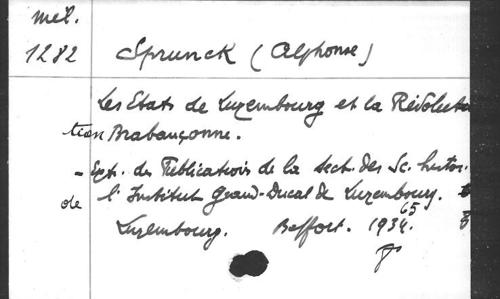 mél.
1282 Sprunck (Alphonse)
Les Etats de Luxembourg et la Révolu
tion Brabançonne.
- Extr. des Publications de la sect. des Sc. histor.
de l'Institut Grand-Ducal de Luxembourg. t
65
Luxembourg. Beffort. 1934.